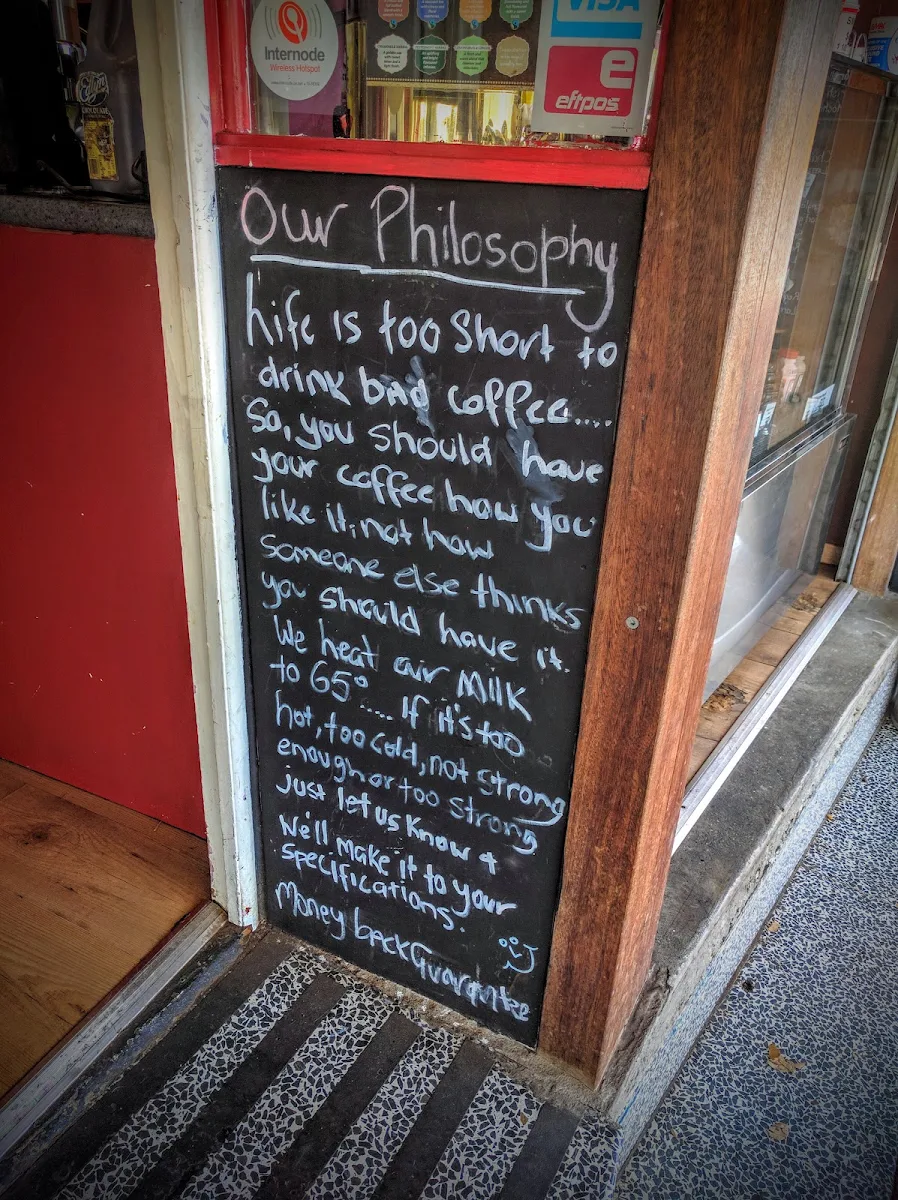 Internode
Wireless Hotspot
VISA
e
eftpos
Our Philosophy
Life is too Short to
drink bad coffee....
So, you should have
your coffee how you
like it, not how
someone else thinks
you should have it.
We heat our Milk
to 65° ..... If it's too
hot, too cold, not strong
enough or too strong
just let us know &
We'll make it to your
specifications.
Money back Guarantee